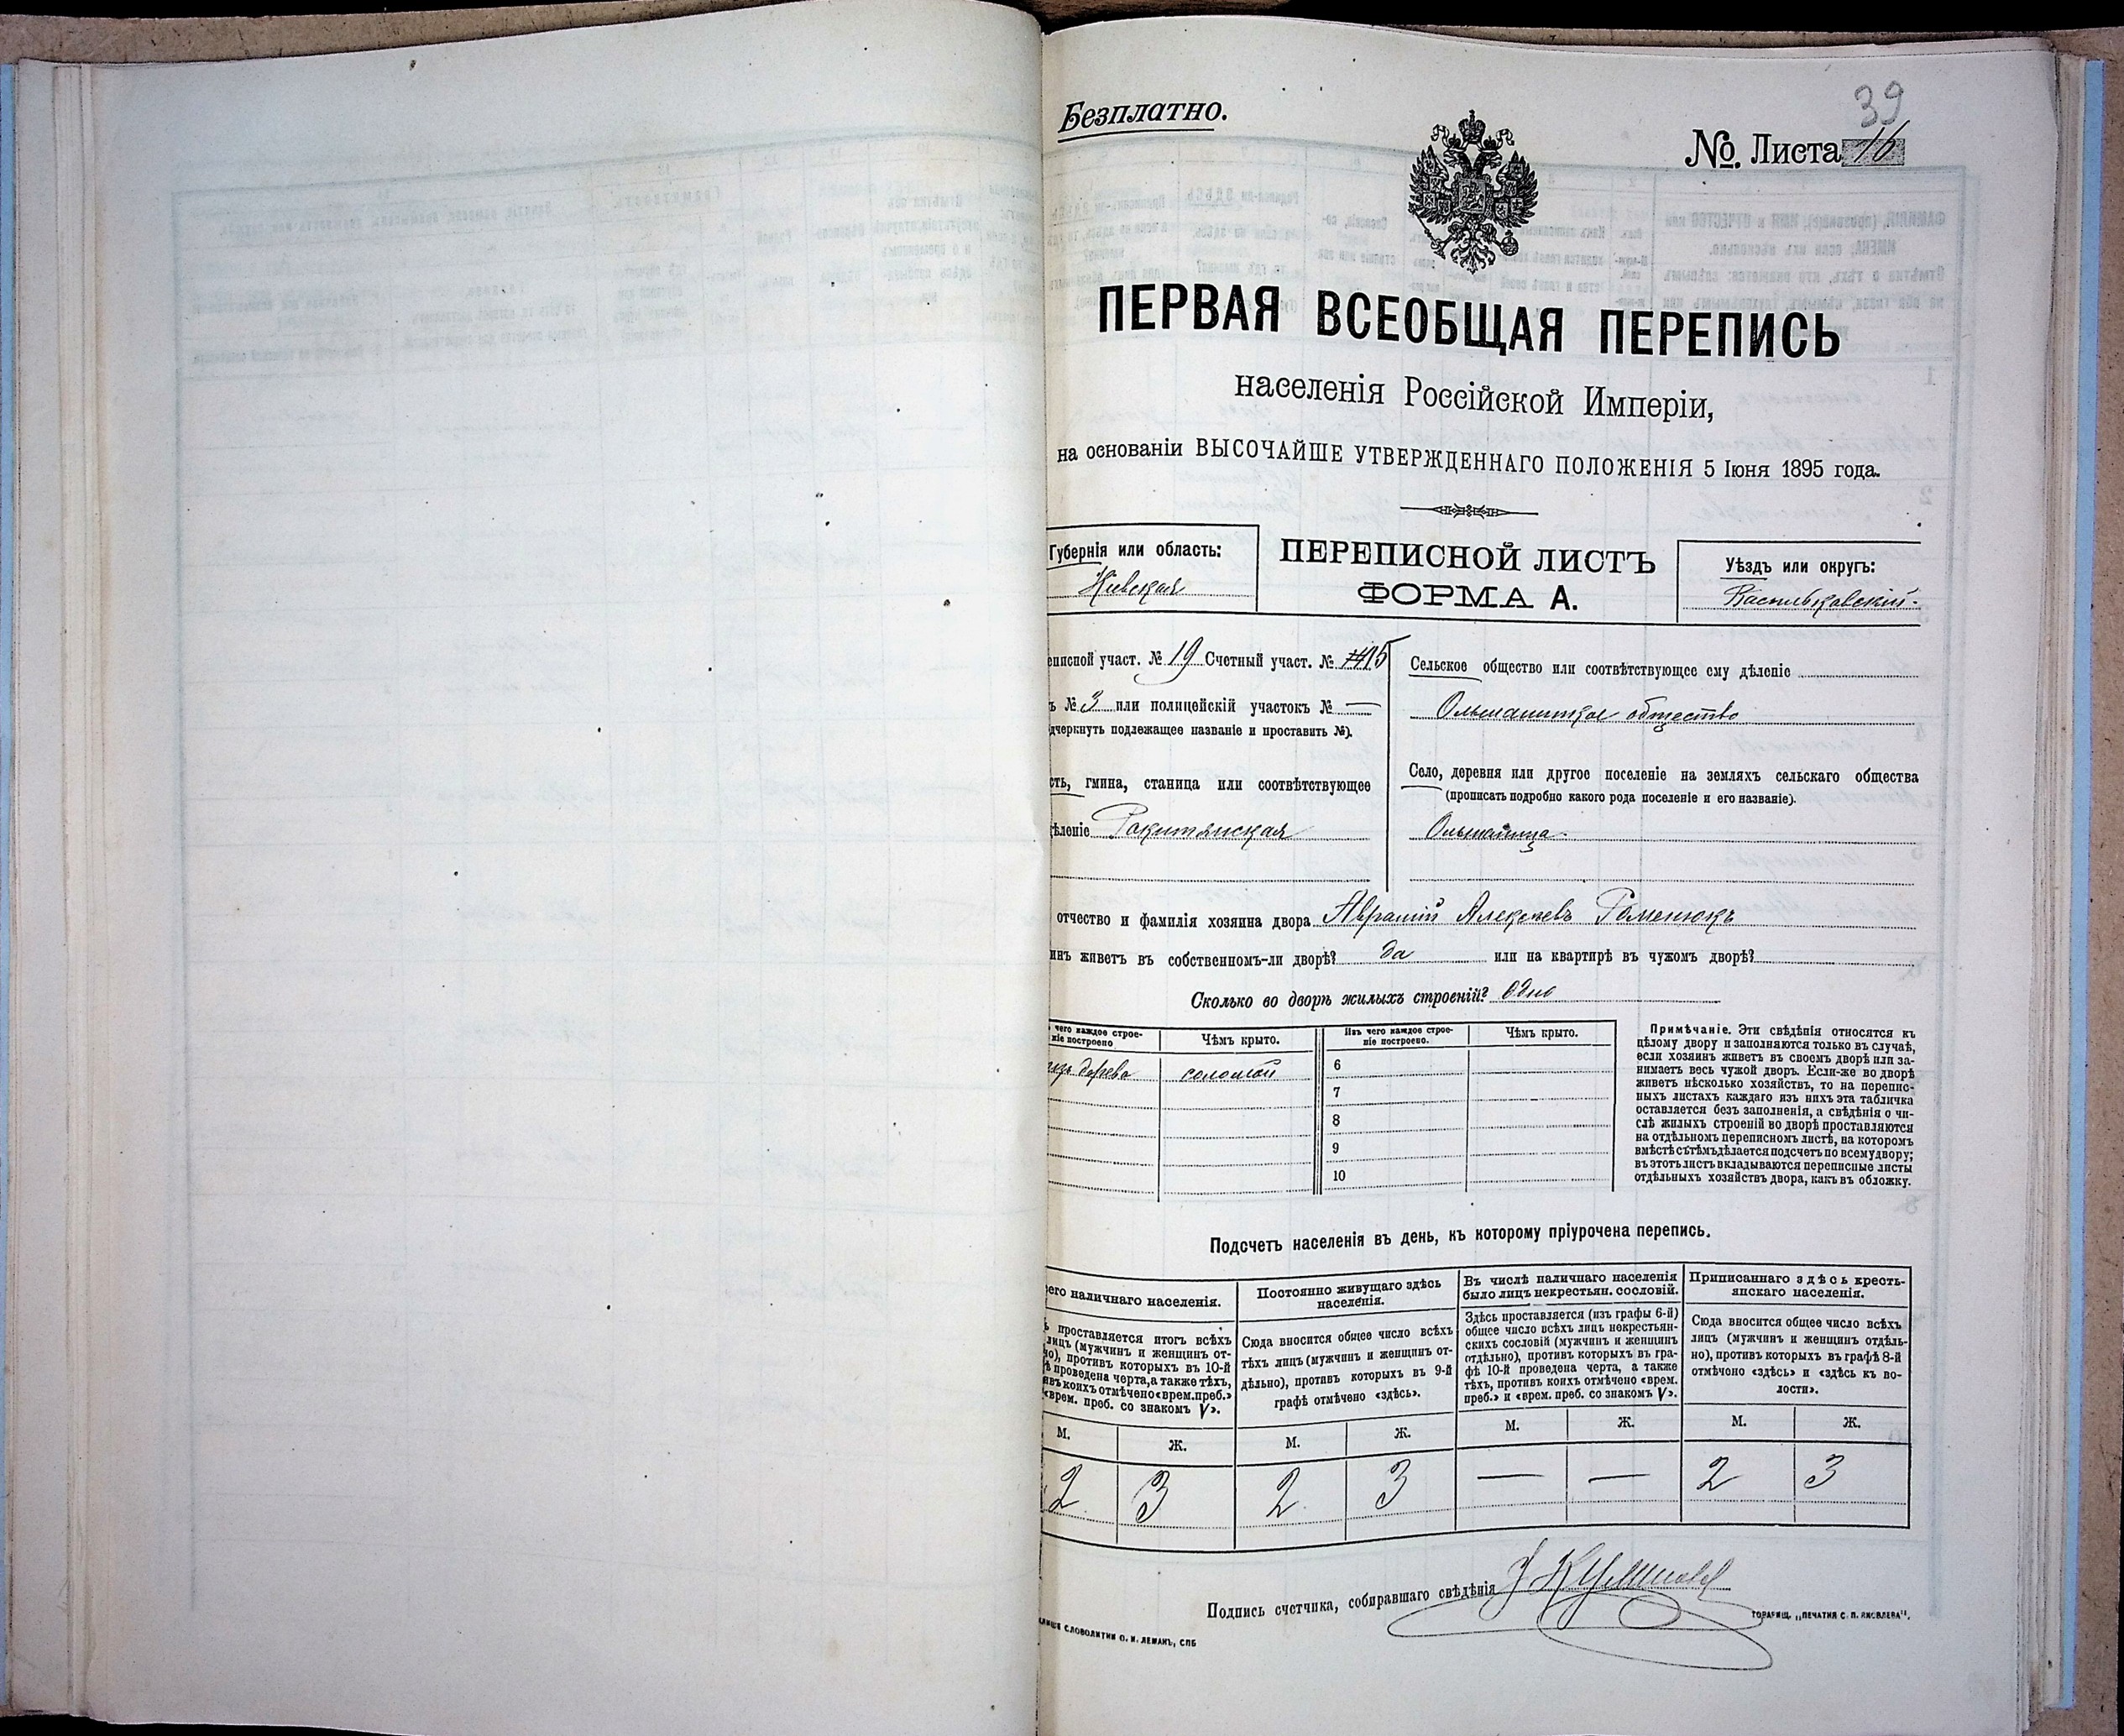 Безплатно.
39
№. Листа 16
ПЕРВАЯ ВСЕОБЩАЯ ПЕРЕПИСЬ
населенія Россійской Имперіи,
на основаніи ВЫСОЧАЙШЕ УТВЕРЖДЕННАГО ПОЛОЖЕНІЯ 5 Іюня 1895 года.
Губернія или область:
Кіевская
ПЕРЕПИСНОЙ ЛИСТЪ
ФОРМА А.
Уѣздъ или округъ:
Васильковскій.
еписной участ. № 19 Счетный участ. № 15
ъ № 3 или полицейскій участокъ № —
дчеркнуть подлежащее названіе и проставить №).
сть, гмина, станица или соотвѣтствующее
дѣленіе Ракитянская
Сельское общество или соотвѣтствующее ему дѣленіе
Ольшаницкое общество
Село, деревня или другое поселеніе на земляхъ сельскаго общества
(прописать подробно какого рода поселеніе и его названіе).
Ольшаница
отчество и фамилія хозяина двора Аврамій Алексѣевъ Роменюкъ
инъ живетъ въ собственномъ-ли дворѣ? да или на квартирѣ въ чужомъ дворѣ?
Сколько во дворѣ жилыхъ строеній? Одно
чего каждое строе-
ніе построено
Чѣмъ крыто.
Изъ чего каждое строе-
ніе построено.
Чѣмъ крыто.
изъ дерева
соломой
6
7
8
9
10
Примѣчаніе. Эти свѣдѣнія относятся къ
цѣлому двору и заполняются только въ случаѣ,
если хозяинъ живетъ въ своемъ дворѣ или за-
нимаетъ весь чужой дворъ. Если-же во дворѣ
живетъ нѣсколько хозяйствъ, то на перепис-
ныхъ листахъ каждаго изъ нихъ эта табличка
оставляется безъ заполненія, а свѣдѣнія о чи-
слѣ жилыхъ строеній во дворѣ проставляются
на отдѣльномъ переписномъ листѣ, на которомъ
вмѣстѣ съ тѣмъ дѣлается подсчетъ по всему двору;
въ этотъ листъ вкладываются переписные листы
отдѣльныхъ хозяйствъ двора, какъ въ обложку.
Подсчетъ населенія въ день, къ которому пріурочена перепись.
его наличнаго населенія.
ь проставляется итогъ всѣхъ
лицъ (мужчинъ и женщинъ от-
но), противъ которыхъ въ 10-й
ѣ проведена черта, а также тѣхъ,
ивъ коихъ отмѣчено «врем. преб.»
«врем. преб. со знакомъ V».
Постоянно живущаго здѣсь
населенія.
Сюда вносится общее число всѣхъ
тѣхъ лицъ (мужчинъ и женщинъ от-
дѣльно), противъ которыхъ въ 9-й
графѣ отмѣчено «здѣсь».
Въ числѣ наличнаго населенія
было лицъ некрестьян. сословій.
Здѣсь проставляется (изъ графы 6-й)
общее число всѣхъ лицъ некрестьян-
скихъ сословій (мужчинъ и женщинъ
отдѣльно), противъ которыхъ въ гра-
фѣ 10-й проведена черта, а также
тѣхъ, противъ коихъ отмѣчено «врем.
преб.» и «врем. преб. со знакомъ V».
Приписаннаго здѣсь кресть-
янскаго населенія.
Сюда вносится общее число всѣхъ
лицъ (мужчинъ и женщинъ отдѣль-
но), противъ которыхъ въ графѣ 8-й
отмѣчено «здѣсь» и «здѣсь къ во-
лости».
М. Ж. М. Ж. М. Ж. М. Ж.
2 3 2 3 — — 2 3
Подпись счетчика, собиравшаго свѣдѣнія
СЛОВОЛИТНИ О. И. ЛЕМАНЪ, СПБ
ТОВАРИЩ. „ПЕЧАТНЯ С. П. ЯКОВЛЕВА".